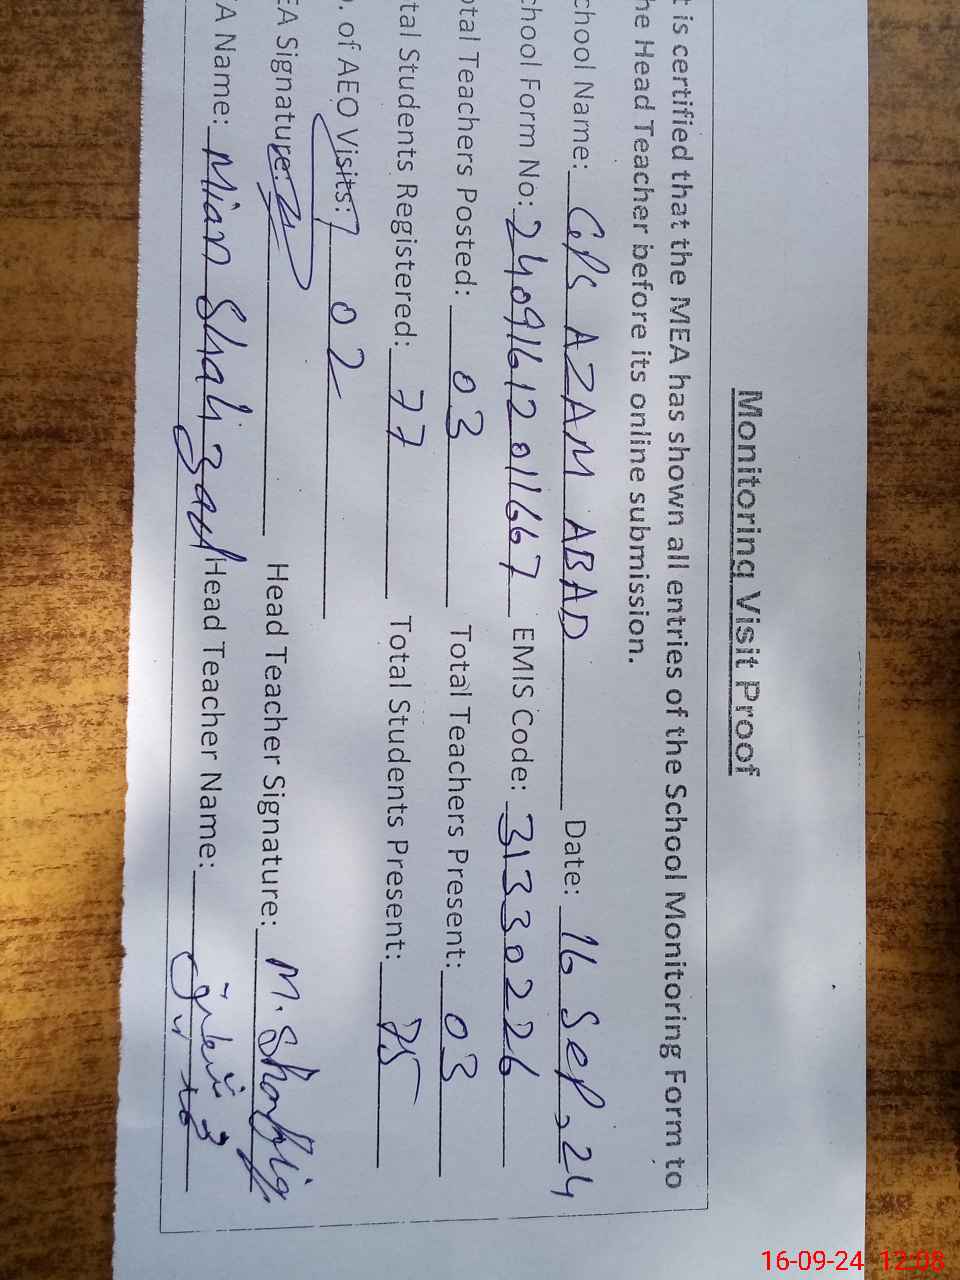 Monitoring Visit Proof
t is certified that the MEA has shown all entries of the School Monitoring Form to
he Head Teacher before its online submission.
chool Name: GPS AZAM ABAD Date: 16 Sep, 24
chool Form No: 24091612011667 EMIS Code: 31330226
otal Teachers Posted: 03 Total Teachers Present: 03
tal Students Registered: 77 Total Students Present: 75
. of AEO Visits: 02
EA Signature: Head Teacher Signature: M. Shafiq
A Name: Mian Shahzad Head Teacher Name:
16-09-24 12:08